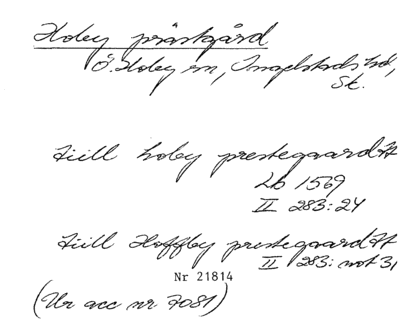 Hoby prästgård
Ö. Hoby sn, Ingelstads hd,
Sk.
Tiill hoby prestegaard H
Lb 1569
II 283:24
Tiill Hoffby prestegaard H
II 283: not 31
Nr 21814
(Ur acc nr 7081)